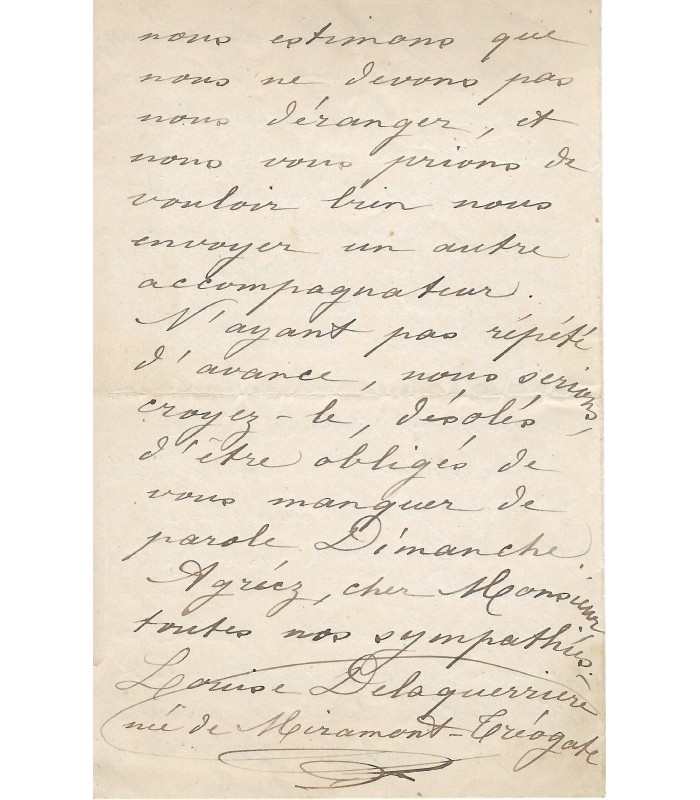 nous estimons que
nous ne devons pas
nous déranger, et
nous vous prions de
vouloir bien nous
envoyer un autre
accompagnateur.
N'ayant pas répété
d'avance, nous serions,
croyez-le, désolés
d'être obligés de
vous manquer de
parole Dimanche.
Agréez, cher Monsieur
toutes nos sympathies.
Louise Delaquerrière
née de Miramont-Tréogate